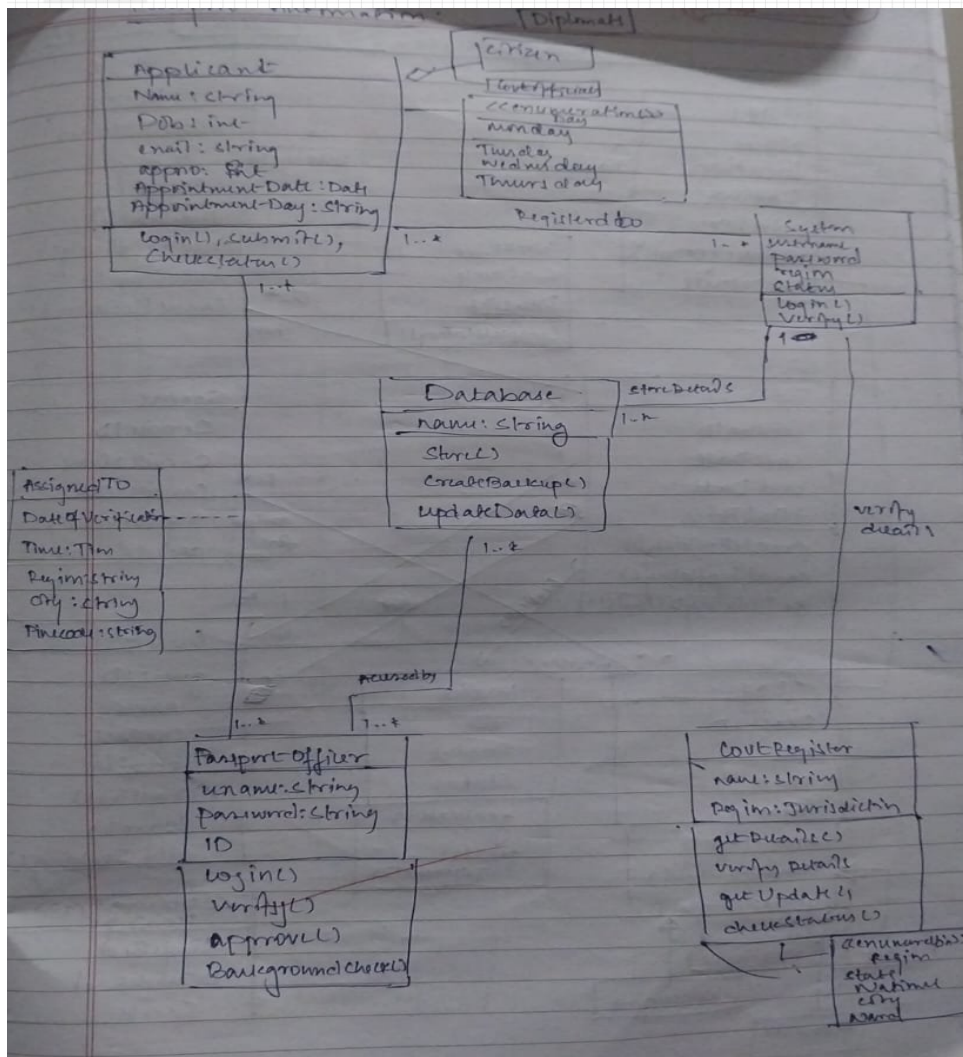 [Diplomats]
Citizen
[Govt Official]
Applicant
Name : String
Dob : int
email : string
appno : int
Appointment-Date : Date
Appointment-Day : String
login(), submit(),
CheckStatus()
<<enumeration>>
Day
Monday
Tuesday
Wednesday
Thursday
Registerd to
1..*
1..*
System
username
password
region
Status
login()
Verify()
1..*
1
Database
name : String
Store()
CreateBackup()
updateData()
StoreDetails
1..*
1..*
AssignedTO
Date of Verification
Time : Time
Region : string
City : string
Pincode : string
verify
details
Accessed by
1..*
1..*
Passport Officer
uname : String
password : String
ID
login()
verify()
approve()
BackgroundCheck()
Govt Register
name : String
Region : Jurisdiction
getDetails()
verify Details
getUpdate()
checkStatus()
<<enumeration>>
Region
State
National
City
Ward